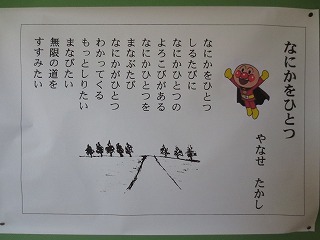 なにかをひとつ
やなせ たかし
なにかをひとつ
しるたびに
なにかひとつの
よろこびがある
なにかひとつを
まなぶたび
なにかがひとつ
わかってくる
もっとしりたい
まなびたい
無限の道を
すすみたい